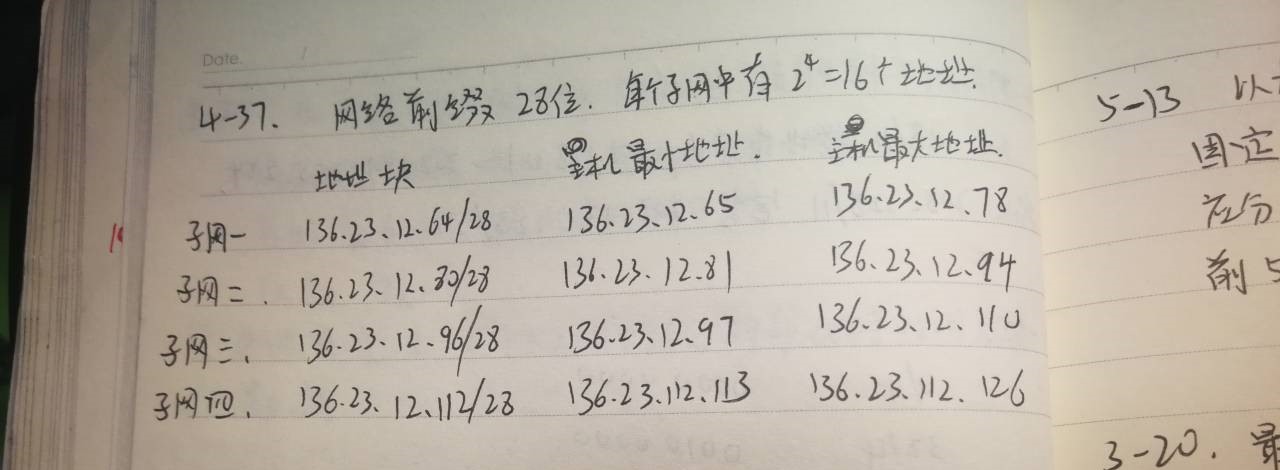 Date. /
4-37. 网络前缀 28位. 每个子网中有 2^4=16个地址.
地址块 主机最小地址. 主机最大地址.
子网一 136.23.12.64/28 136.23.12.65 136.23.12.78
子网二. 136.23.12.80/28 136.23.12.81 136.23.12.94
子网三. 136.23.12.96/28 136.23.12.97 136.23.12.110
子网四. 136.23.12.112/28 136.23.112.113 136.23.112.126
5-13 以
固定
在分
前 5
3-20. 最